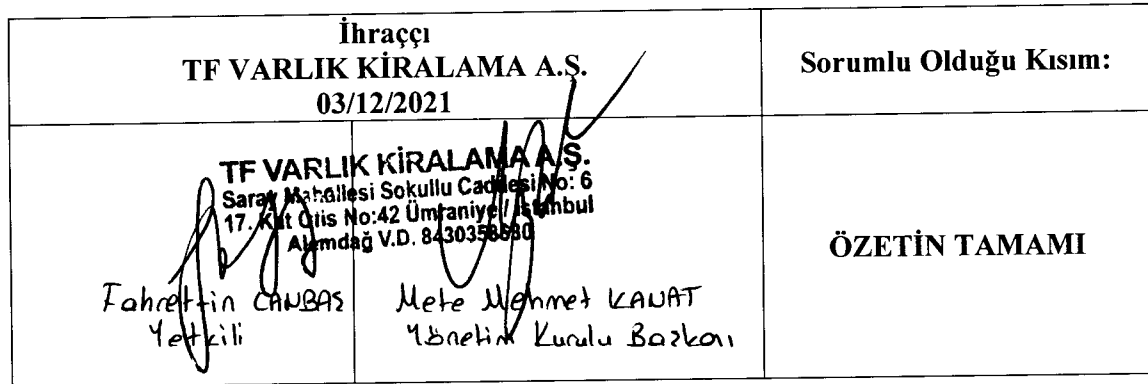 İhraççı
TF VARLIK KİRALAMA A.Ş.
03/12/2021
Sorumlu Olduğu Kısım:
TF VARLIK KİRALAMA A.Ş.
Saray Mahallesi Sokullu Caddesi No: 6
17. Kat Ofis No:42 Ümraniye / İstanbul
Alemdağ V.D.
Fahrettin CANBAŞ
Yetkili
Mete Mehmet KANAT
Yönetim Kurulu Başkanı
ÖZETİN TAMAMI